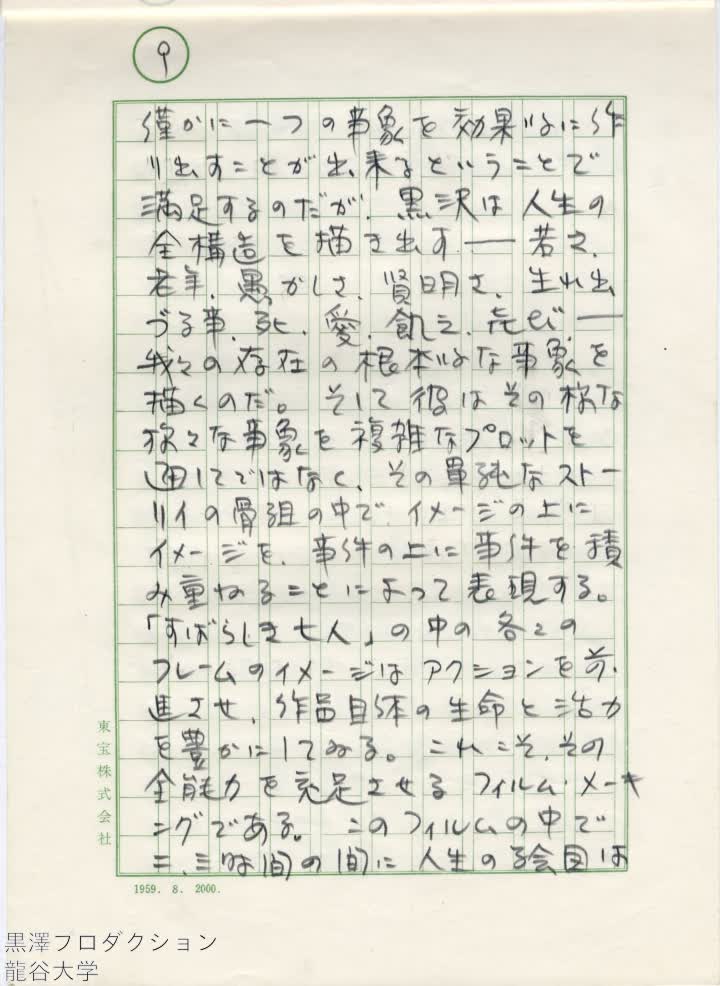 9
僅かに一つの事象を効果的に作
り出すことが出来るということで
満足するのだが、黒沢は人生の
全構造を描き出す――若さ、
老年、愚かしさ、賢明さ、生れ出
づる事、死、愛、飢え、喜び、――
我々の存在の根本的な事象を
描くのだ。そして彼はその様な
様々な事象を複雑なプロットを
通してではなく、その単純なストー
リイの骨組の中で、イメージの上に
イメージを、事件の上に事件を積
み重ねることによって表現する。
「すばらしき七人」の中の各々の
フレームのイメージはアクションを前
進させ、作品自体の生命と活力
を豊かにしてゐる。これこそ、その
全能力を充足させるフィルム・メーキ
ングである。このフィルムの中で
二、三時間の間に人生の絵図は
東宝株式会社
1959. 8. 2000.
黒澤プロダクション
龍谷大学